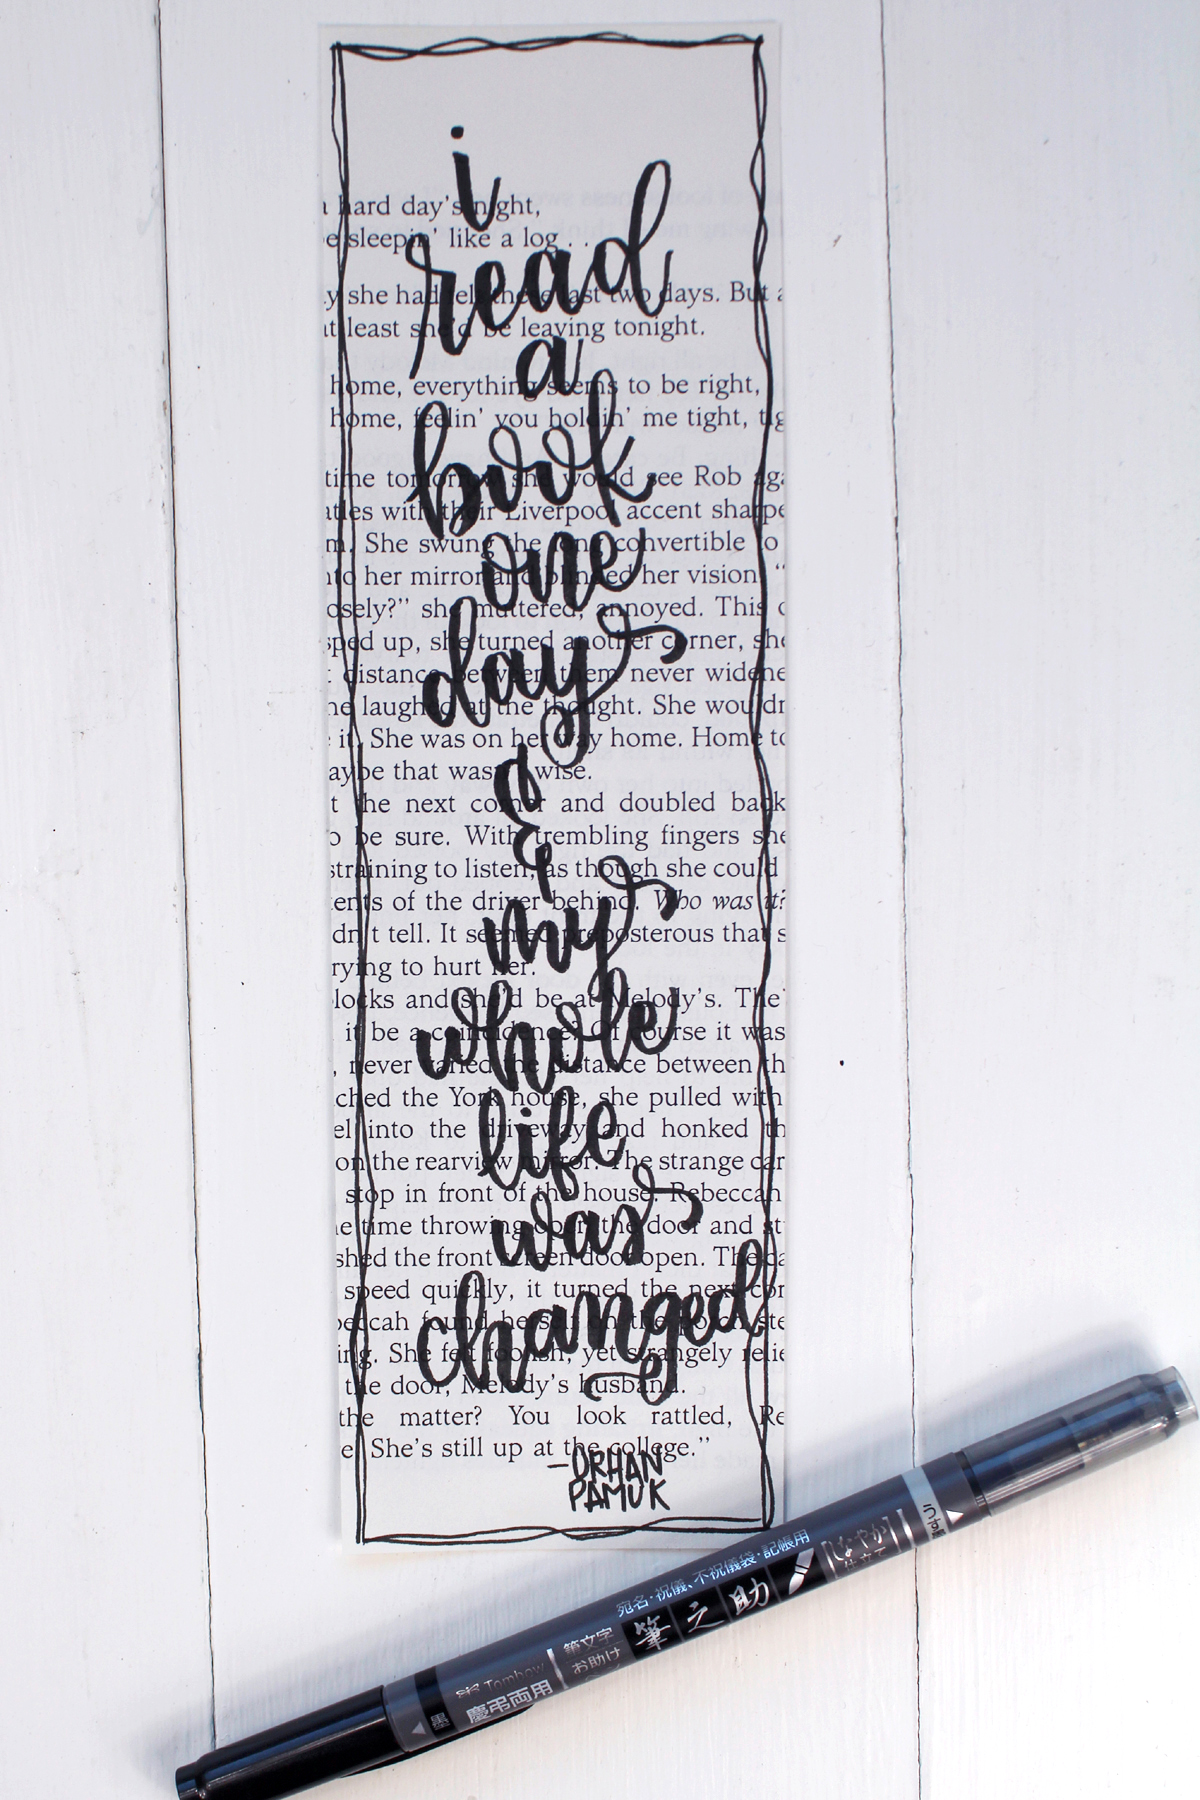 i
read
a
book
one
day
&
my
whole
life
was
changed
-ORHAN
PAMUK
a hard day's night,
sleepin' like a log . .
she had felt these last two days. But
at least she'd be leaving tonight.
home, everything seems to be right,
home, feelin' you holdin' me tight,
time tomorrow she would see Rob
with their Liverpool accent
She swung the long convertible to
her mirror and blinded her vision. "
she muttered, annoyed. This
up, she turned another corner,
distance between them never
laughed at the thought. She
it. She was on her way home. Home
that was wise.
the next corner and doubled back
be sure. With trembling fingers she
straining to listen, as though she could
of the driver behind. Who was it?
tell. It seemed preposterous that
to hurt her.
and she'd be at Melody's. The
it be a coincidence? Of course it was
, never varied the distance between
the York house, she pulled with
into the driveway and honked
on the rearview mirror. The strange car
stop in front of the house. Rebeccah
time throwing open the door and
the front screen door open. The
speed quickly, it turned the next
found herself on the porch
She felt foolish, yet strangely
the door, Melody's husband.
the matter? You look rattled,
She's still up at the college."
宛名・祝儀、不祝儀袋・記帳用
筆之助
しなやか
仕立て
筆文字
お助け
Tombow
慶弔両用